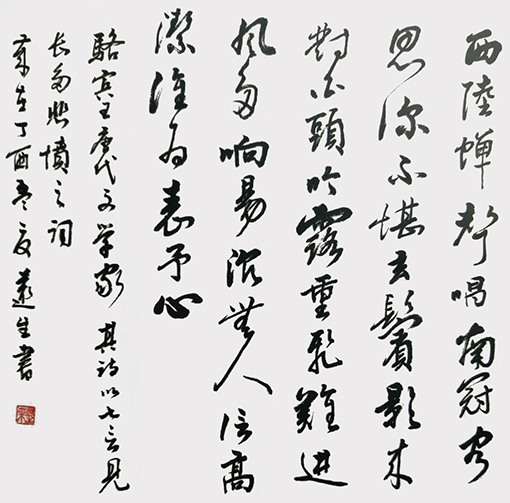 西陸蝉聲唱南冠客
思深不堪玄鬢影来
對白頭吟露重飛難進
風多响易沉無人信高
潔誰為表予心
駱賓王唐代文学家其詩以七言見
長多悲憤之詞
歲在丁酉夏生書